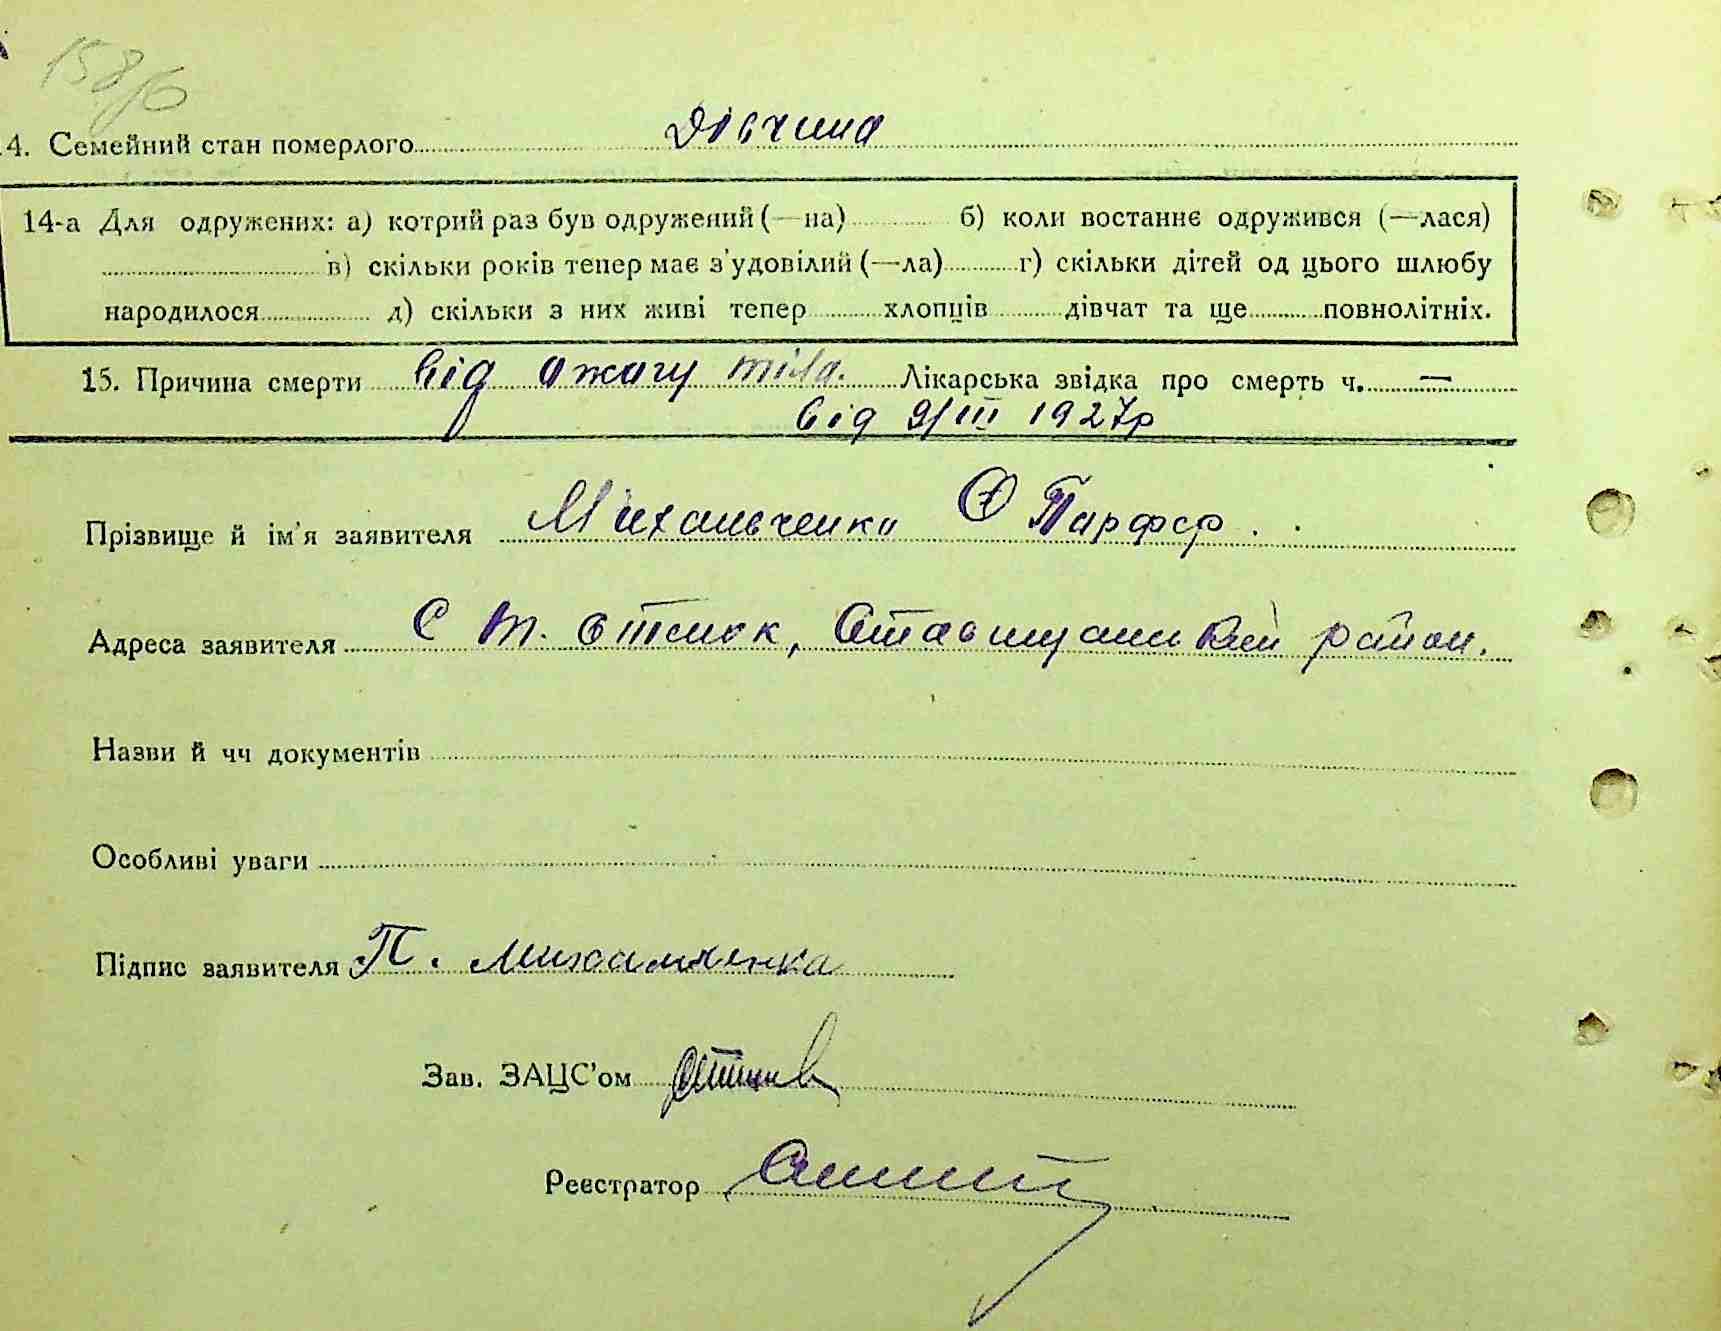 158/б
14. Семейний стан померлого дівчина
14-а Для одружених: а) котрий раз був одружений (—на) б) коли востаннє одружився (—лася)
в) скільки років тепер має з'удовілий (—ла) г) скільки дітей од цього шлюбу
народилося д) скільки з них живі тепер хлопців дівчат та ще повнолітніх.
15. Причина смерти від ожогу тіла. Лікарська звідка про смерть ч. —
від 9/III 1927р
Прізвище й ім'я заявителя Михальченко Парфер.
Адреса заявителя С Ставищанський район.
Назви й чч документів
Особливі уваги
Підпис заявителя П. Михальченка
Зав. ЗАЦС'ом
Реєстратор